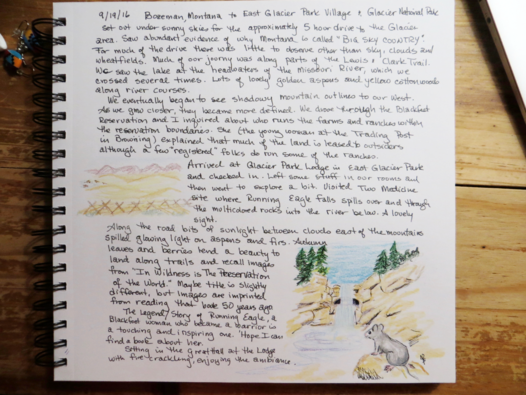 9/19/16 Bozeman, Montana to East Glacier Park Village & Glacier National Park
Set out under sunny skies for the approximately 5 hour drive to the Glacier
area. Saw abundant evidence of why Montana is called "BIG SKY COUNTRY".
For much of the drive there was little to observe other than sky, clouds and
wheatfields. Much of our jorny was along parts of the Lewis & Clark Trail.
We saw the lake at the headwaters of the Missori River, which we
crossed several times. Lots of lovely golden aspens and yellow cottonwoods
along river courses.
We eventually began to see shadowy mountain outlines to our West.
As we grew closer, they became more defined. We drove through the Blackfeet
Reservation and I inquired about who runs the farms and ranches within
the reservation boundaries. She (the young woman at the Trading Post
in Browning) explained that much of the land is leased to outsiders
although a few "registered" folks do run some of the ranches.
Arrived at Glacier Park Lodge in East Glacier Park
and checked in. Left some stuff in our rooms and
then went to explore a bit. Visited Two Medicine
site where Running Eagle Falls spills over and through
the multicolored rocks into the river below. A lovely
sight.
Along the road bits of sunlight between clouds east of the mountains
spilled glowing light on aspens and firs. Autumn
leaves and berries lend a beauty to
land along trails and recall images
from "In Wildness is The Preservation
of the World." Maybe title is slightly
different, but images are imprinted
from reading that book 50 years ago.
The Legend/Story of Running Eagle, a
Blackfeet woman who became a warrior is
a touching and inspiring one. Hope I can
find a book about her.
Sitting in the great hall at the Lodge
with fire crackling, enjoying the ambiance.